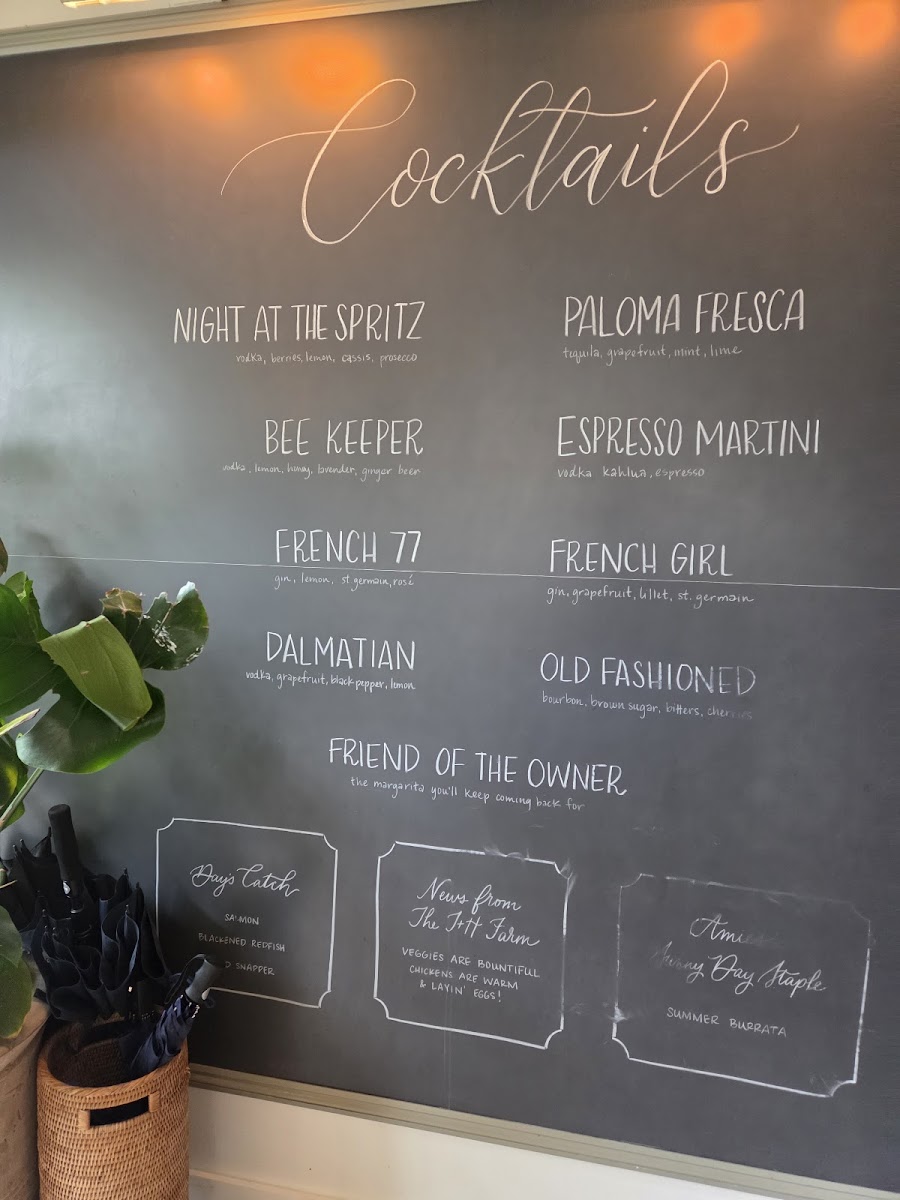 Cocktails
NIGHT AT THE SPRITZ
vodka, berries, lemon, cassis, prosecco
BEE KEEPER
vodka, lemon, honey, lavender, ginger beer
FRENCH 77
gin, lemon, st. germain, rosé
DALMATIAN
vodka, grapefruit, black pepper, lemon
PALOMA FRESCA
tequila, grapefruit, mint, lime
ESPRESSO MARTINI
vodka kahlua, espresso
FRENCH GIRL
gin, grapefruit, lillet, st. germain
OLD FASHIONED
bourbon, brown sugar, bitters, cherries
FRIEND OF THE OWNER
the margarita you'll keep coming back for
Day's Catch
SALMON
BLACKENED REDFISH
D SNAPPER
News from
The J+H Farm
VEGGIES ARE BOUNTIFUL
CHICKENS ARE WARM
& LAYIN' EGGS!
Day Staple
SUMMER BURRATA